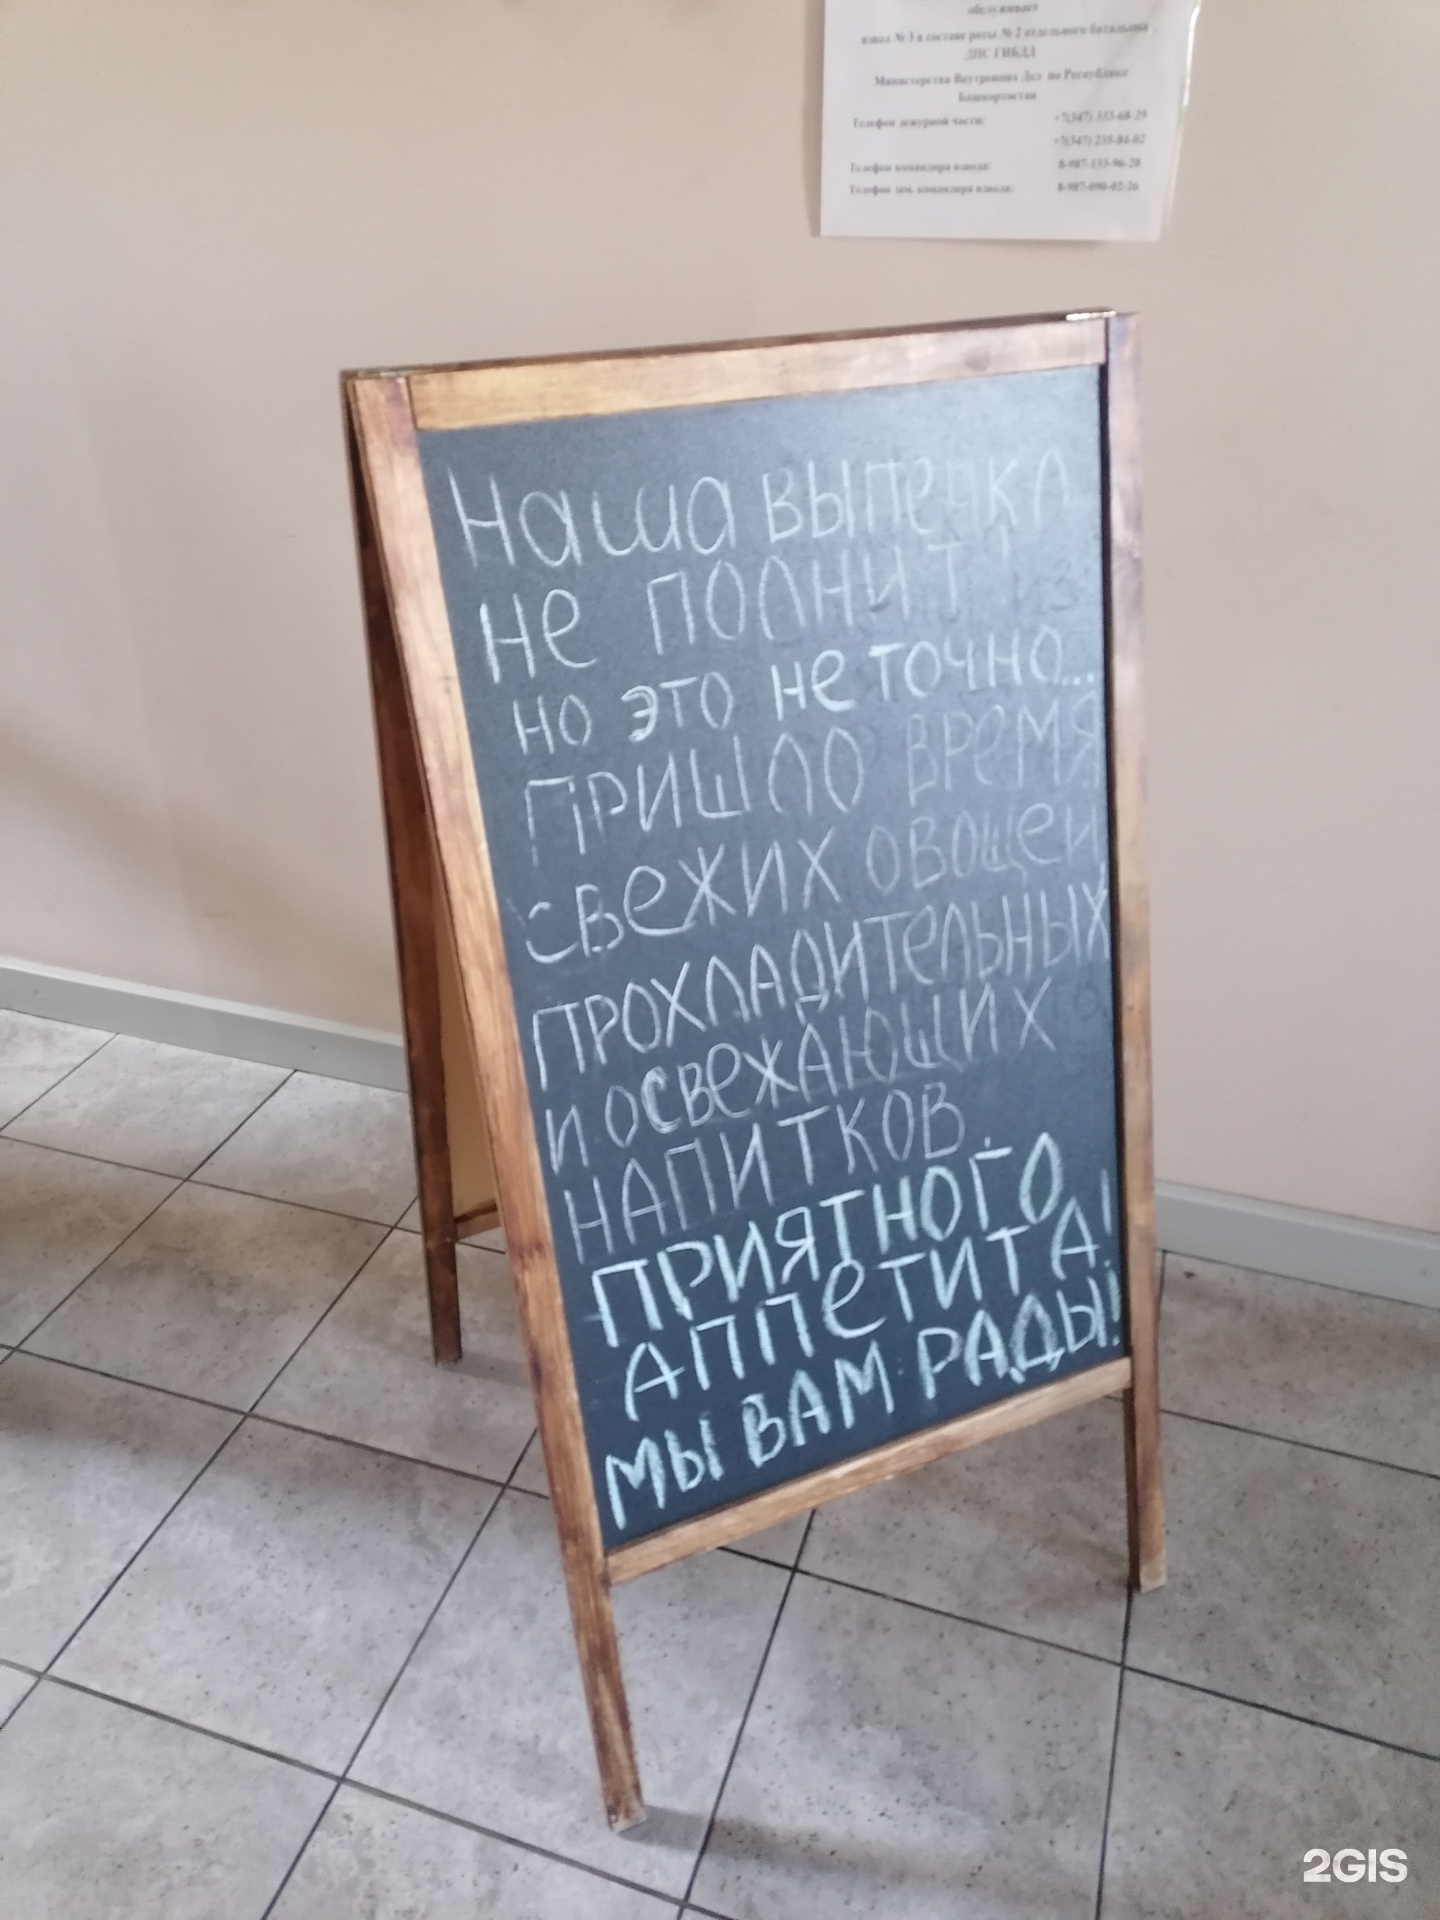 обслуживает
взвод № 3 в составе роты № 2 отдельного батальона
ДПС ГИБДД
Министерства Внутренних Дел по Республике
Башкортостан
Телефон дежурной части: +7(347) 333-68-29
+7(347) 235-84-02
Телефон командира взвода: 8-987-133-96-28
Телефон зам. командира взвода: 8-987-090-02-26
Наша выпечка
не полнит
но это не точно...
Пришло время
свежих овощей,
прохладительных
и освежающих
напитков.
Приятного
аппетита!
Мы вам рады!
2GIS